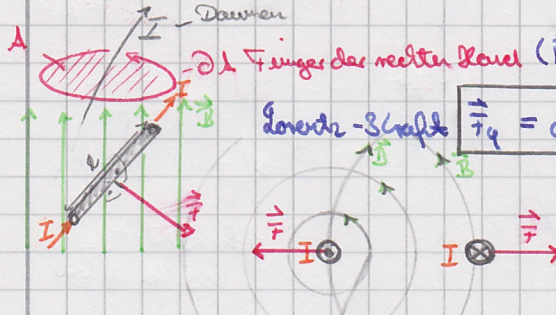 I - Daumen
A
- ∂A Finger der rechten Hand (
I
B⃗
Lorentz-Kraft F⃗q =
l
B⃗ B⃗
F⃗
F⃗ F⃗
I I I